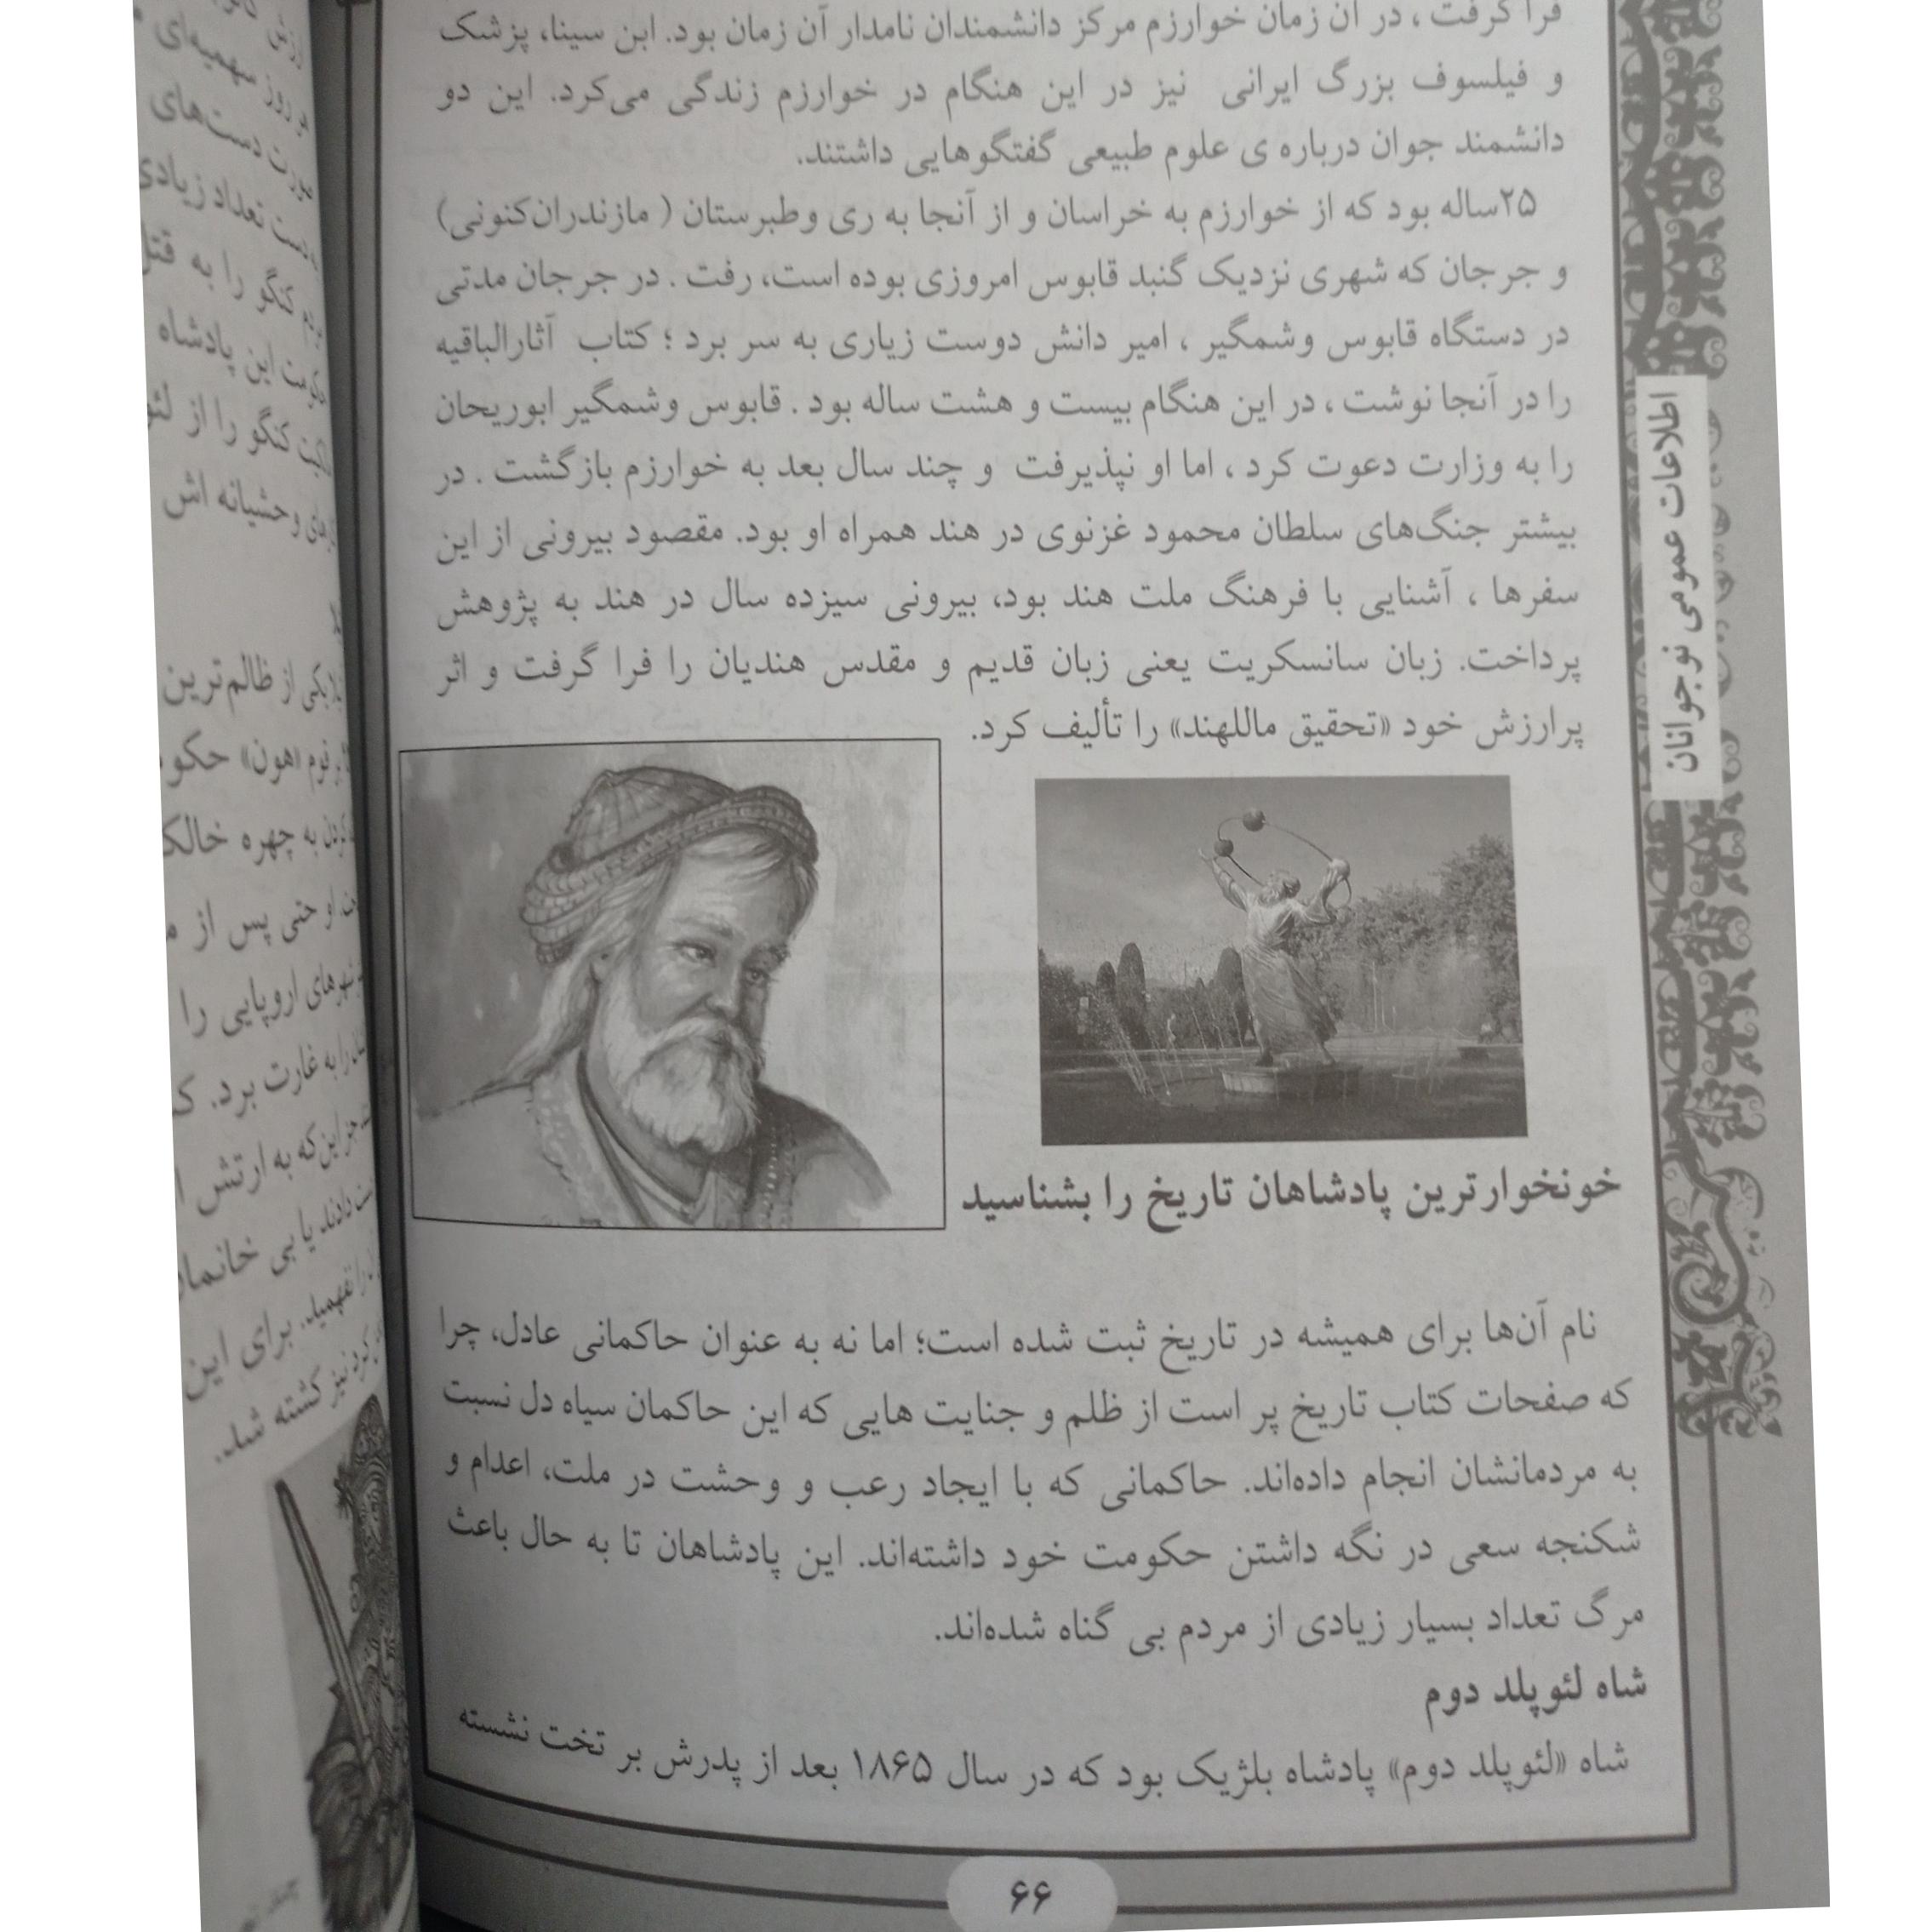 فرا گرفت ، در آن زمان خوارزم مرکز دانشمندان نامدار آن زمان بود. ابن سینا، پزشک
و فیلسوف بزرگ ایرانی نیز در این هنگام در خوارزم زندگی می‌کرد. این دو
دانشمند جوان درباره ی علوم طبیعی گفتگوهایی داشتند.
۲۵ساله بود که از خوارزم به خراسان و از آنجا به ری وطبرستان ( مازندران‌کنونی)
و جرجان که شهری نزدیک گنبد قابوس امروزی بوده است، رفت . در جرجان مدتی
در دستگاه قابوس وشمگیر ، امیر دانش دوست زیاری به سر برد ؛ کتاب آثارالباقیه
را در آنجا نوشت ، در این هنگام بیست و هشت ساله بود . قابوس وشمگیر ابوریحان
را به وزارت دعوت کرد ، اما او نپذیرفت و چند سال بعد به خوارزم بازگشت . در
بیشتر جنگ‌های سلطان محمود غزنوی در هند همراه او بود. مقصود بیرونی از این
سفرها ، آشنایی با فرهنگ ملت هند بود، بیرونی سیزده سال در هند به پژوهش
پرداخت. زبان سانسکریت یعنی زبان قدیم و مقدس هندیان را فرا گرفت و اثر
پرارزش خود «تحقیق ماللهند» را تألیف کرد.
خونخوارترین پادشاهان تاریخ را بشناسید
نام آن‌ها برای همیشه در تاریخ ثبت شده است؛ اما نه به عنوان حاکمانی عادل، چرا
که صفحات کتاب تاریخ پر است از ظلم و جنایت هایی که این حاکمان سیاه دل نسبت
به مردمانشان انجام داده‌اند. حاکمانی که با ایجاد رعب و وحشت در ملت، اعدام و
شکنجه سعی در نگه داشتن حکومت خود داشته‌اند. این پادشاهان تا به حال باعث
مرگ تعداد بسیار زیادی از مردم بی گناه شده‌اند.
شاه لئوپلد دوم
شاه «لئوپلد دوم» پادشاه بلژیک بود که در سال ۱۸۶۵ بعد از پدرش بر تخت نشسته
۶۶
اطلاعات عمومی نوجوانان
روز سهمیه‌ای
دست‌های
تعداد زیادی
کنگو را به
این پادشاه
کنگو را از
وحشیانه اش
از ظالم‌ترین
«هون»
به چهره
او حتی پس از
اروپایی را
را به غارت برد.
این‌که به ارتش
دادند یا بی
را نفهمید. برای این
نیز کشته شد.